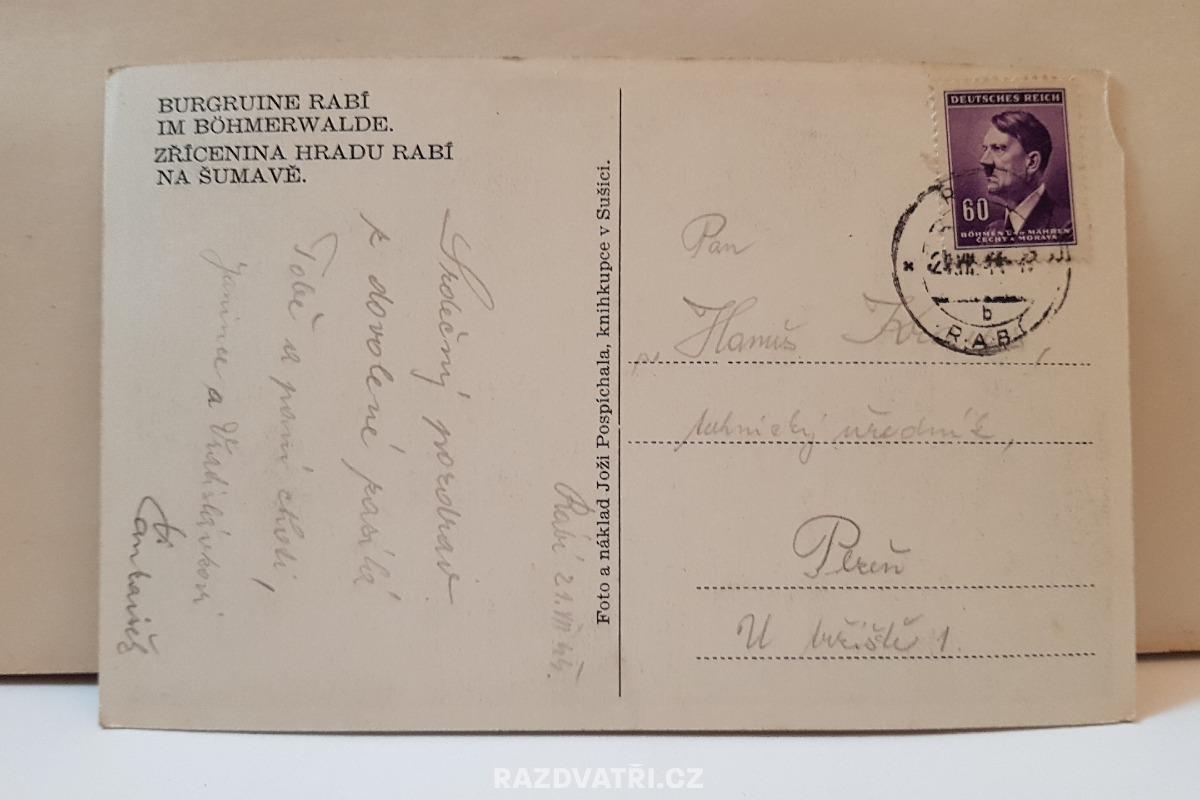 BURGRUINE RABÍ
IM BÖHMERWALDE.
ZŘÍCENINA HRADU RABÍ
NA ŠUMAVĚ.
Rabí 21.VII 44.
Srdečný pozdrav
z dovolené zasílá
Tobě a paní choti,
Janince a Vladislávkovi
Foto a náklad Joži Pospíchala, knihkupce v Sušici.
DEUTSCHES REICH
60
BÖHMEN UND MÄHREN
ČECHY A MORAVA
b
RABÍ
Pan
Hanuš
technický úředník,
Plzeň
U tržiště 1.
RAZDVATŘI.CZ